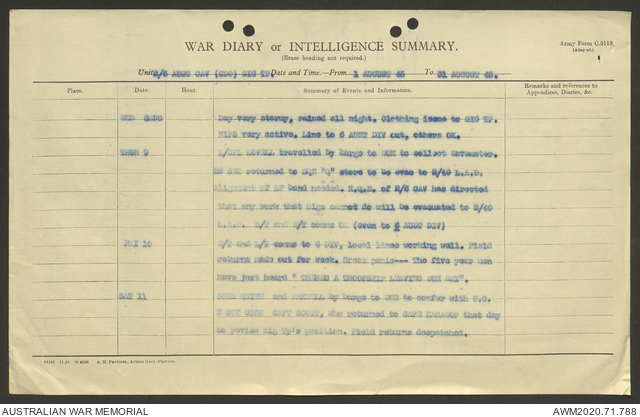 WAR DIARY or INTELLIGENCE SUMMARY.
(Erase heading not required.)
Army Form C.2118.
Unit 2/6 AUST CAV (CDO) SIG TP. Date and Time.—From 1 AUGUST 45 To 31 AUGUST 45.
Place. Date. Hour. Summary of Events and Information. Remarks and references to Appendices, Diaries, &c.
WED 8AUG Day very stormy, rained all night. Clothing issue to SIG TP.
NIPS very active. Line to 6 AUST DIV cut, others OK.
THUR 9 L/CPL LOVELL travelled by barge to to collect
returned to "Q" store to be evac to 2/40 L.A.D.
Alignment of band needed. of 2/6 CAV has directed
that any work that Sigs cannot do will be evacuated to 2/40
L.A.D. L/T and comms OK to 6 AUST DIV)
FRI 10 and L/T comms to 6 DIV, local lines working well. Field
returns made out for week. Great panic--- The five year men
have just heard " THERES A TROOPSHIP LEAVING BAY".
SAT 11 and by barge to to confer with O.C.
CAPT SCOTT, who returned to CAPE KARAWOP that day
to review Sig Tp's position. Field returns despatched.
AUSTRALIAN WAR MEMORIAL
AWM2020.71.788